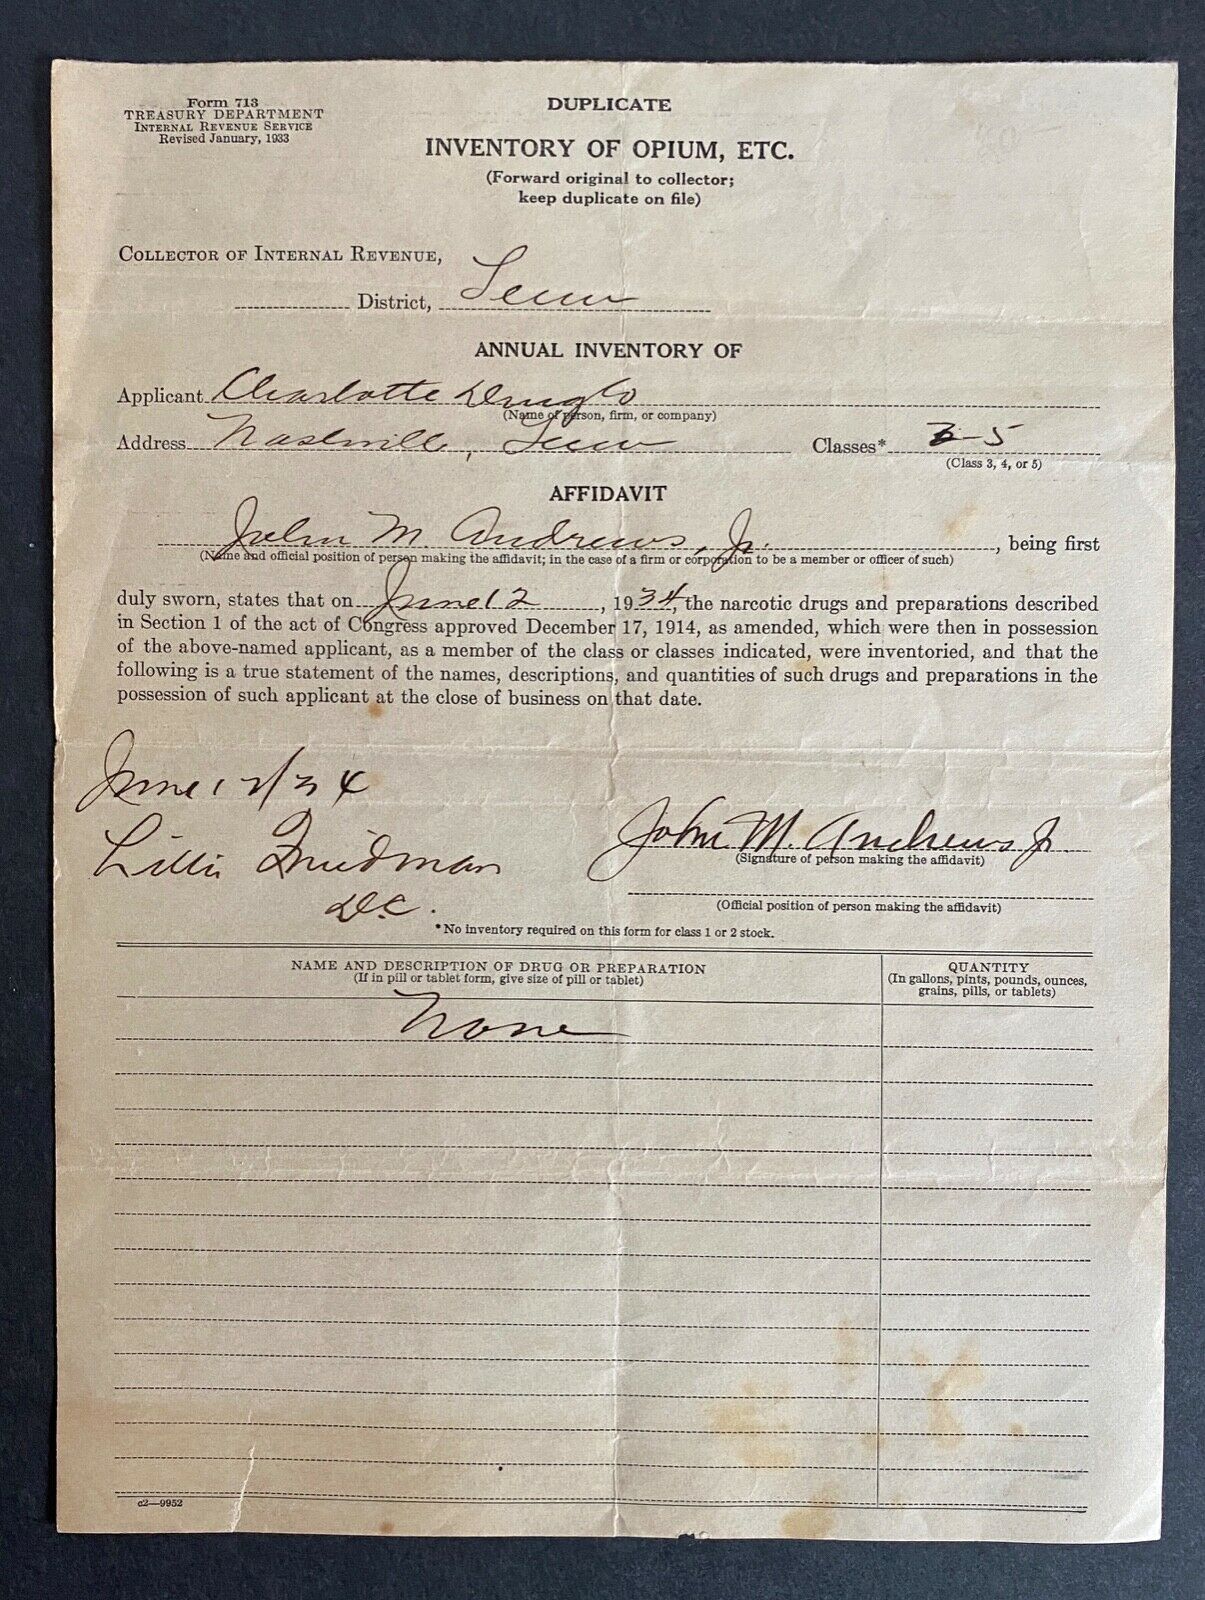 Form 713
TREASURY DEPARTMENT
INTERNAL REVENUE SERVICE
Revised January, 1933
DUPLICATE
INVENTORY OF OPIUM, ETC.
(Forward original to collector;
keep duplicate on file)
COLLECTOR OF INTERNAL REVENUE,
District, Tenn
ANNUAL INVENTORY OF
Applicant Charlotte Drug Co
(Name of person, firm, or company)
Address Nashville, Tenn Classes* 3-5
(Class 3, 4, or 5)
AFFIDAVIT
John M. Andrews, Jr. , being first
(Name and official position of person making the affidavit; in the case of a firm or corporation to be a member or officer of such)
duly sworn, states that on June 12, 1934, the narcotic drugs and preparations described
in Section 1 of the act of Congress approved December 17, 1914, as amended, which were then in possession
of the above-named applicant, as a member of the class or classes indicated, were inventoried, and that the
following is a true statement of the names, descriptions, and quantities of such drugs and preparations in the
possession of such applicant at the close of business on that date.
June 12/34
John M. Andrews Jr.
(Signature of person making the affidavit)
Lillie Friedman
D.C.
(Official position of person making the affidavit)
*No inventory required on this form for class 1 or 2 stock.
NAME AND DESCRIPTION OF DRUG OR PREPARATION
(If in pill or tablet form, give size of pill or tablet)
QUANTITY
(In gallons, pints, pounds, ounces,
grains, pills, or tablets)
None
c2—9952